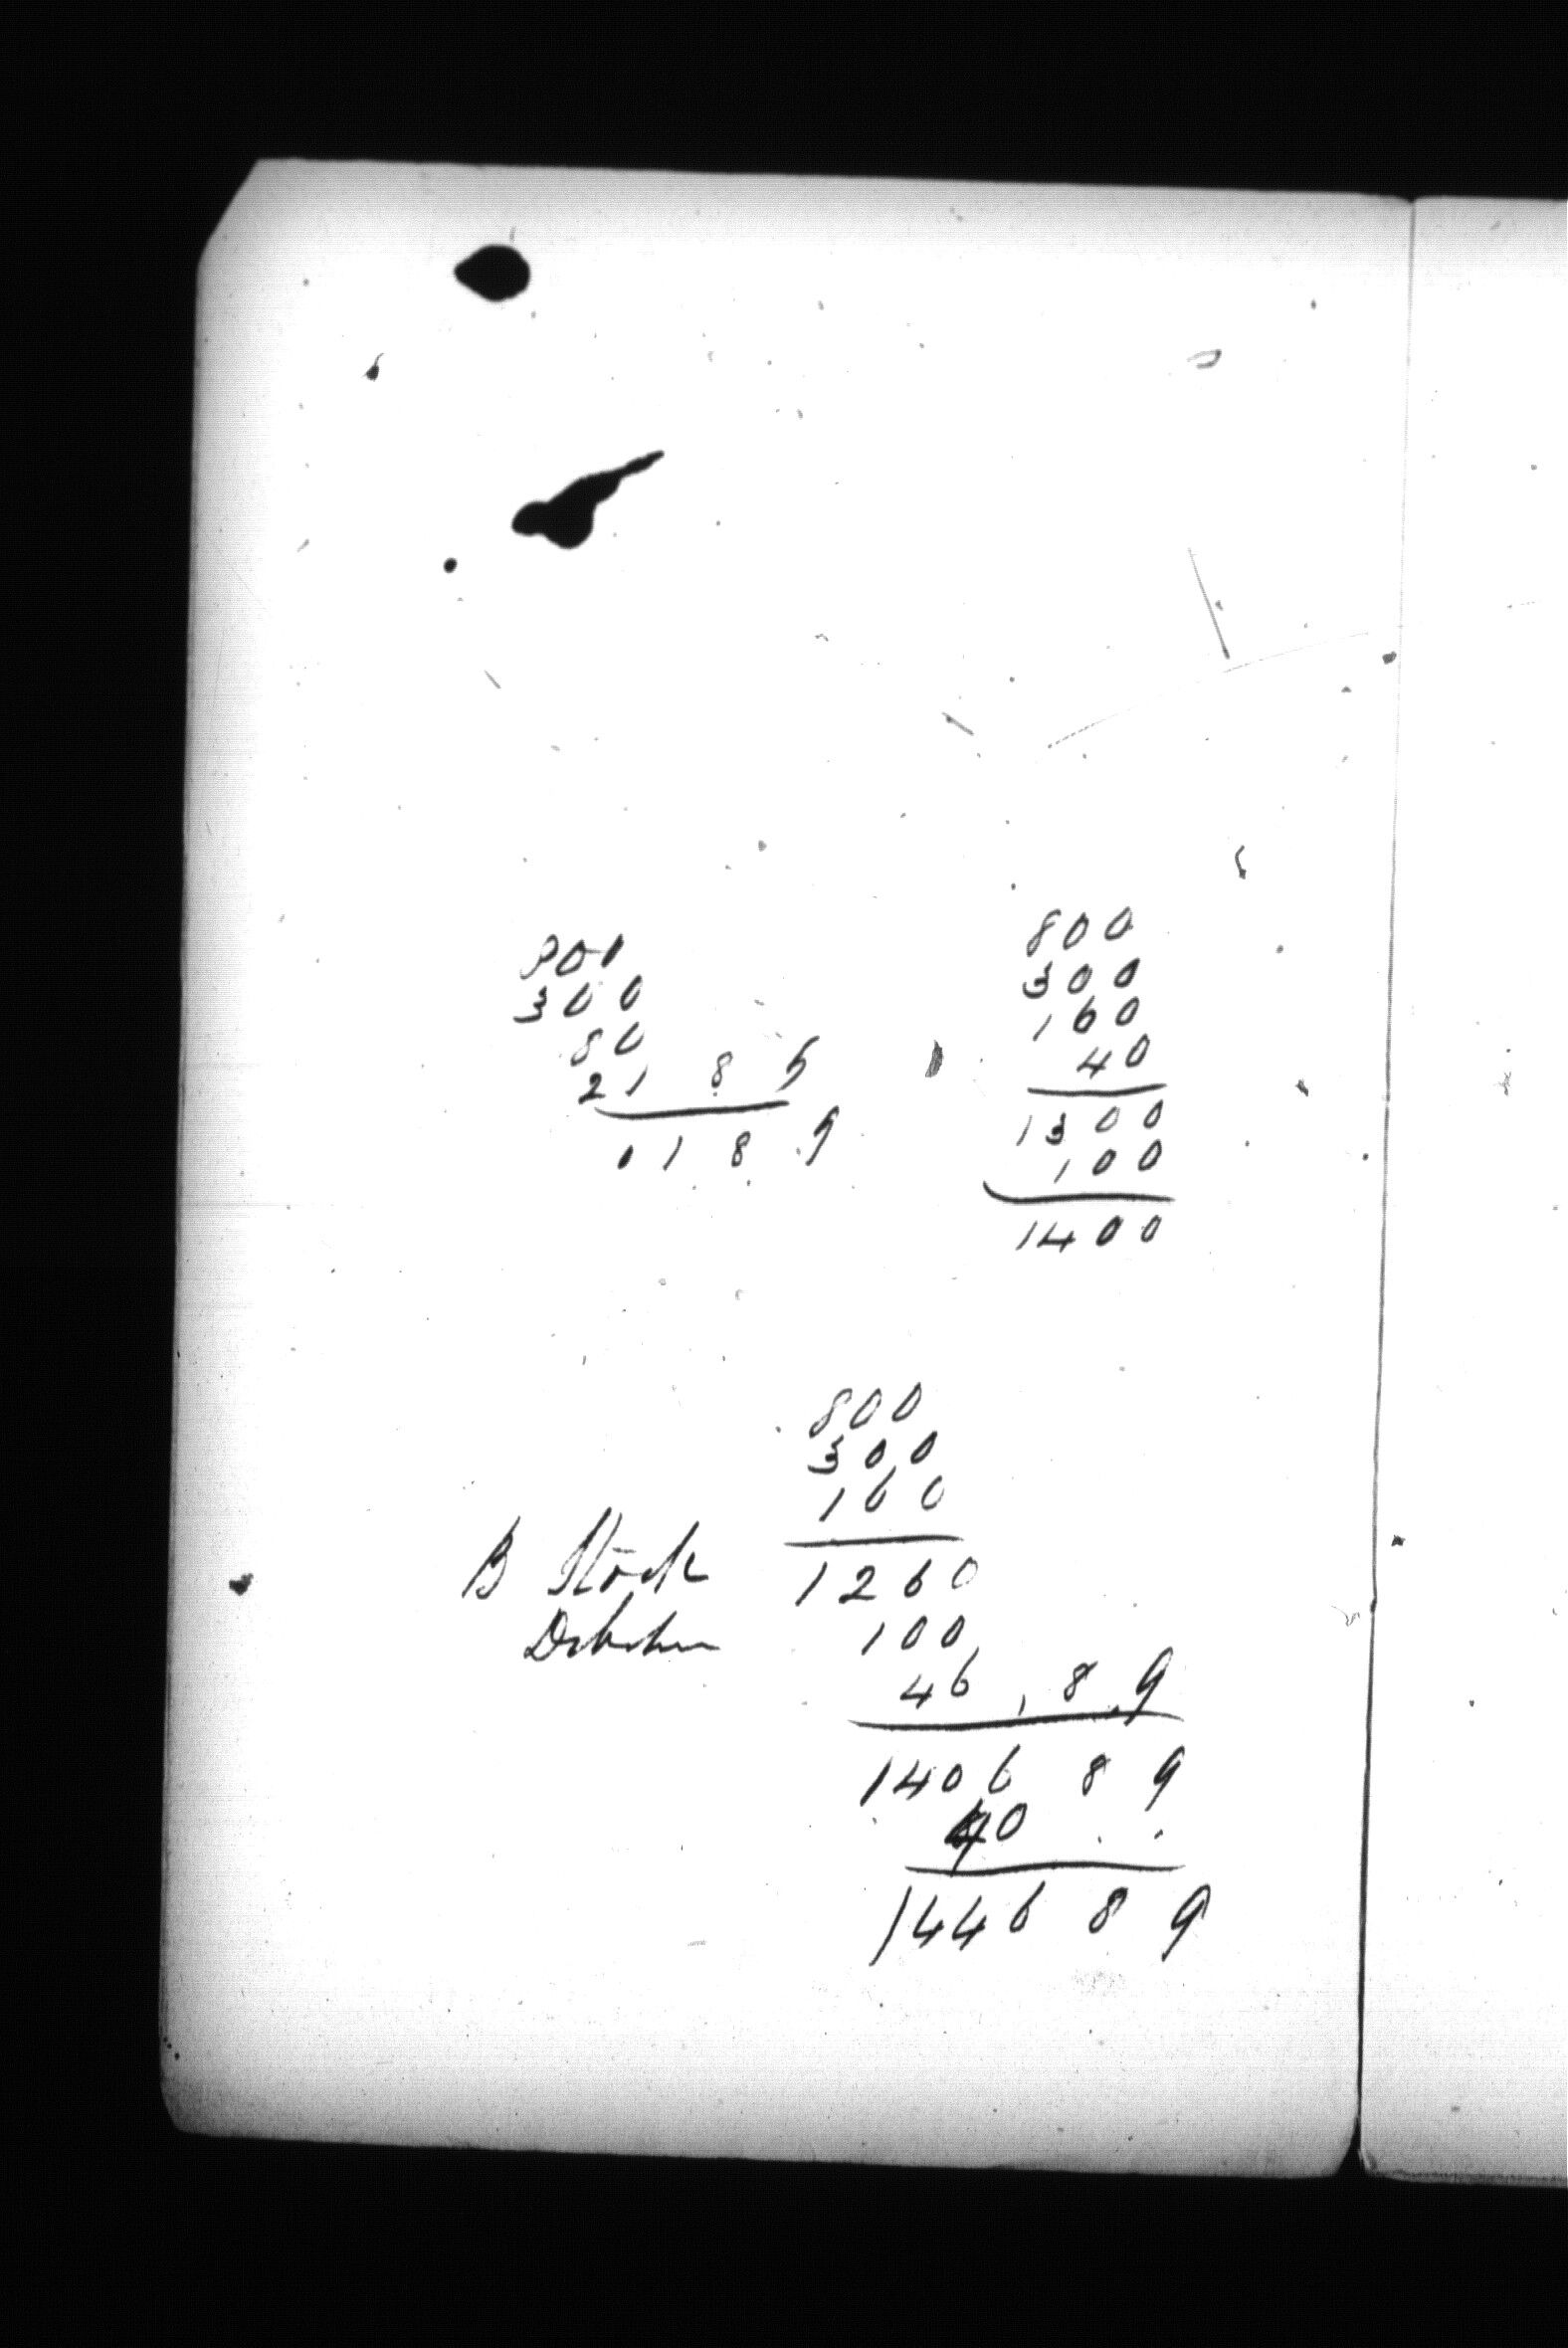 800
300
80
21 8 5
01 8 9
800
300
160
40
1300
100
1400
800
300
160
B Stock 1260
100
46 , 8 . 9
1406 8 9
40 . .
1446 8 9